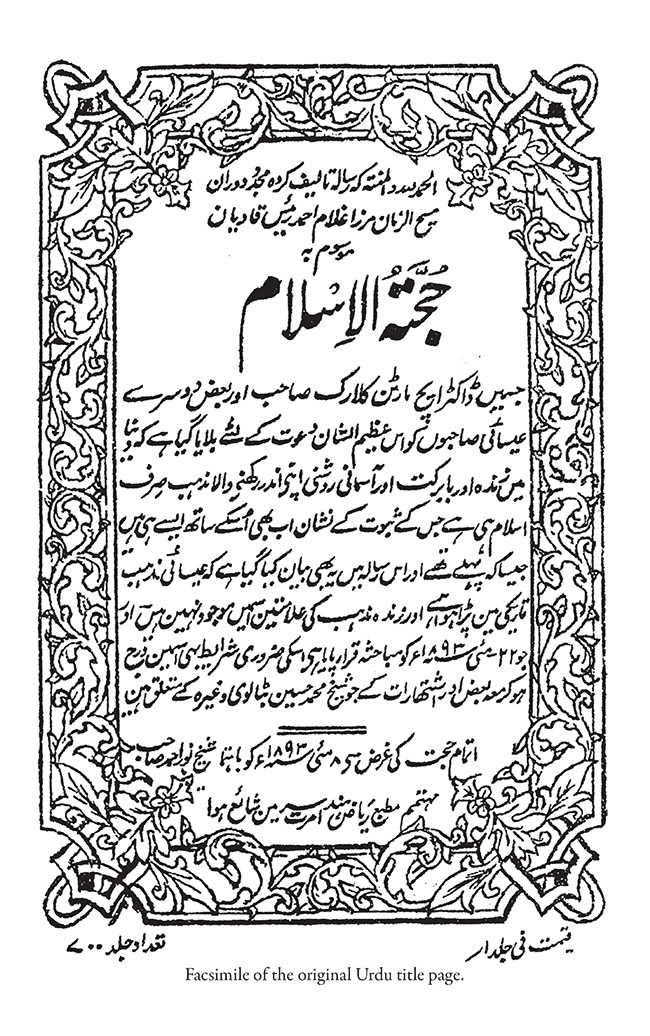 الحمد للہ والمنۃ کہ رسالہ تالیف کردہ مجدد دوران
مسیح الزمان مرزا غلام احمد رئیس قادیان
موسوم بہ
حُجَّۃُ الْاِسْلَام
جسمیں ڈاکٹر ایچ مارٹن کلارک صاحب اور بعض دوسرے
عیسائی صاحبوں کو اس عظیم الشان دعوت کے لئے بلایا گیا ہے کہ دنیا
میں زندہ اور بابرکت اور آسمانی روشنی اپنے اندر رکھنے والا مذہب صرف
اسلام ہی ہے جس کے ثبوت کے نشان اب بھی اُسکے ساتھ ایسے ہی ہیں
جیسا کہ پہلے تھے اور اس رسالہ میں یہ بھی بیان کیا گیا ہے کہ عیسائی مذہب
تاریکی مین پڑا ہوا ہے اور زندہ مذہب کی علامتین اسمیں موجود نہین ہین اور
جو ۲۲- مئی ۱۸۹۳ء کو مباحثہ قرار پایا ہے اسکی ضروری شرایط بھی اسمین درج
ہو کر معہ بعض اور اشتہارات کے جو شیخ محمد حسین بٹالوی وغیرہ کے متعلق ہین
اتمام حجت کی غرض سے ۸ مئی ۱۸۹۳ء کو باہتمام شیخ نور احمد صاحب
مہتمم مطبع ریاض ہند امرتسر مین شائع ہوا
قیمت فی جلد ار
تعداد جلد ۷۰۰
Facsimile of the original Urdu title page.